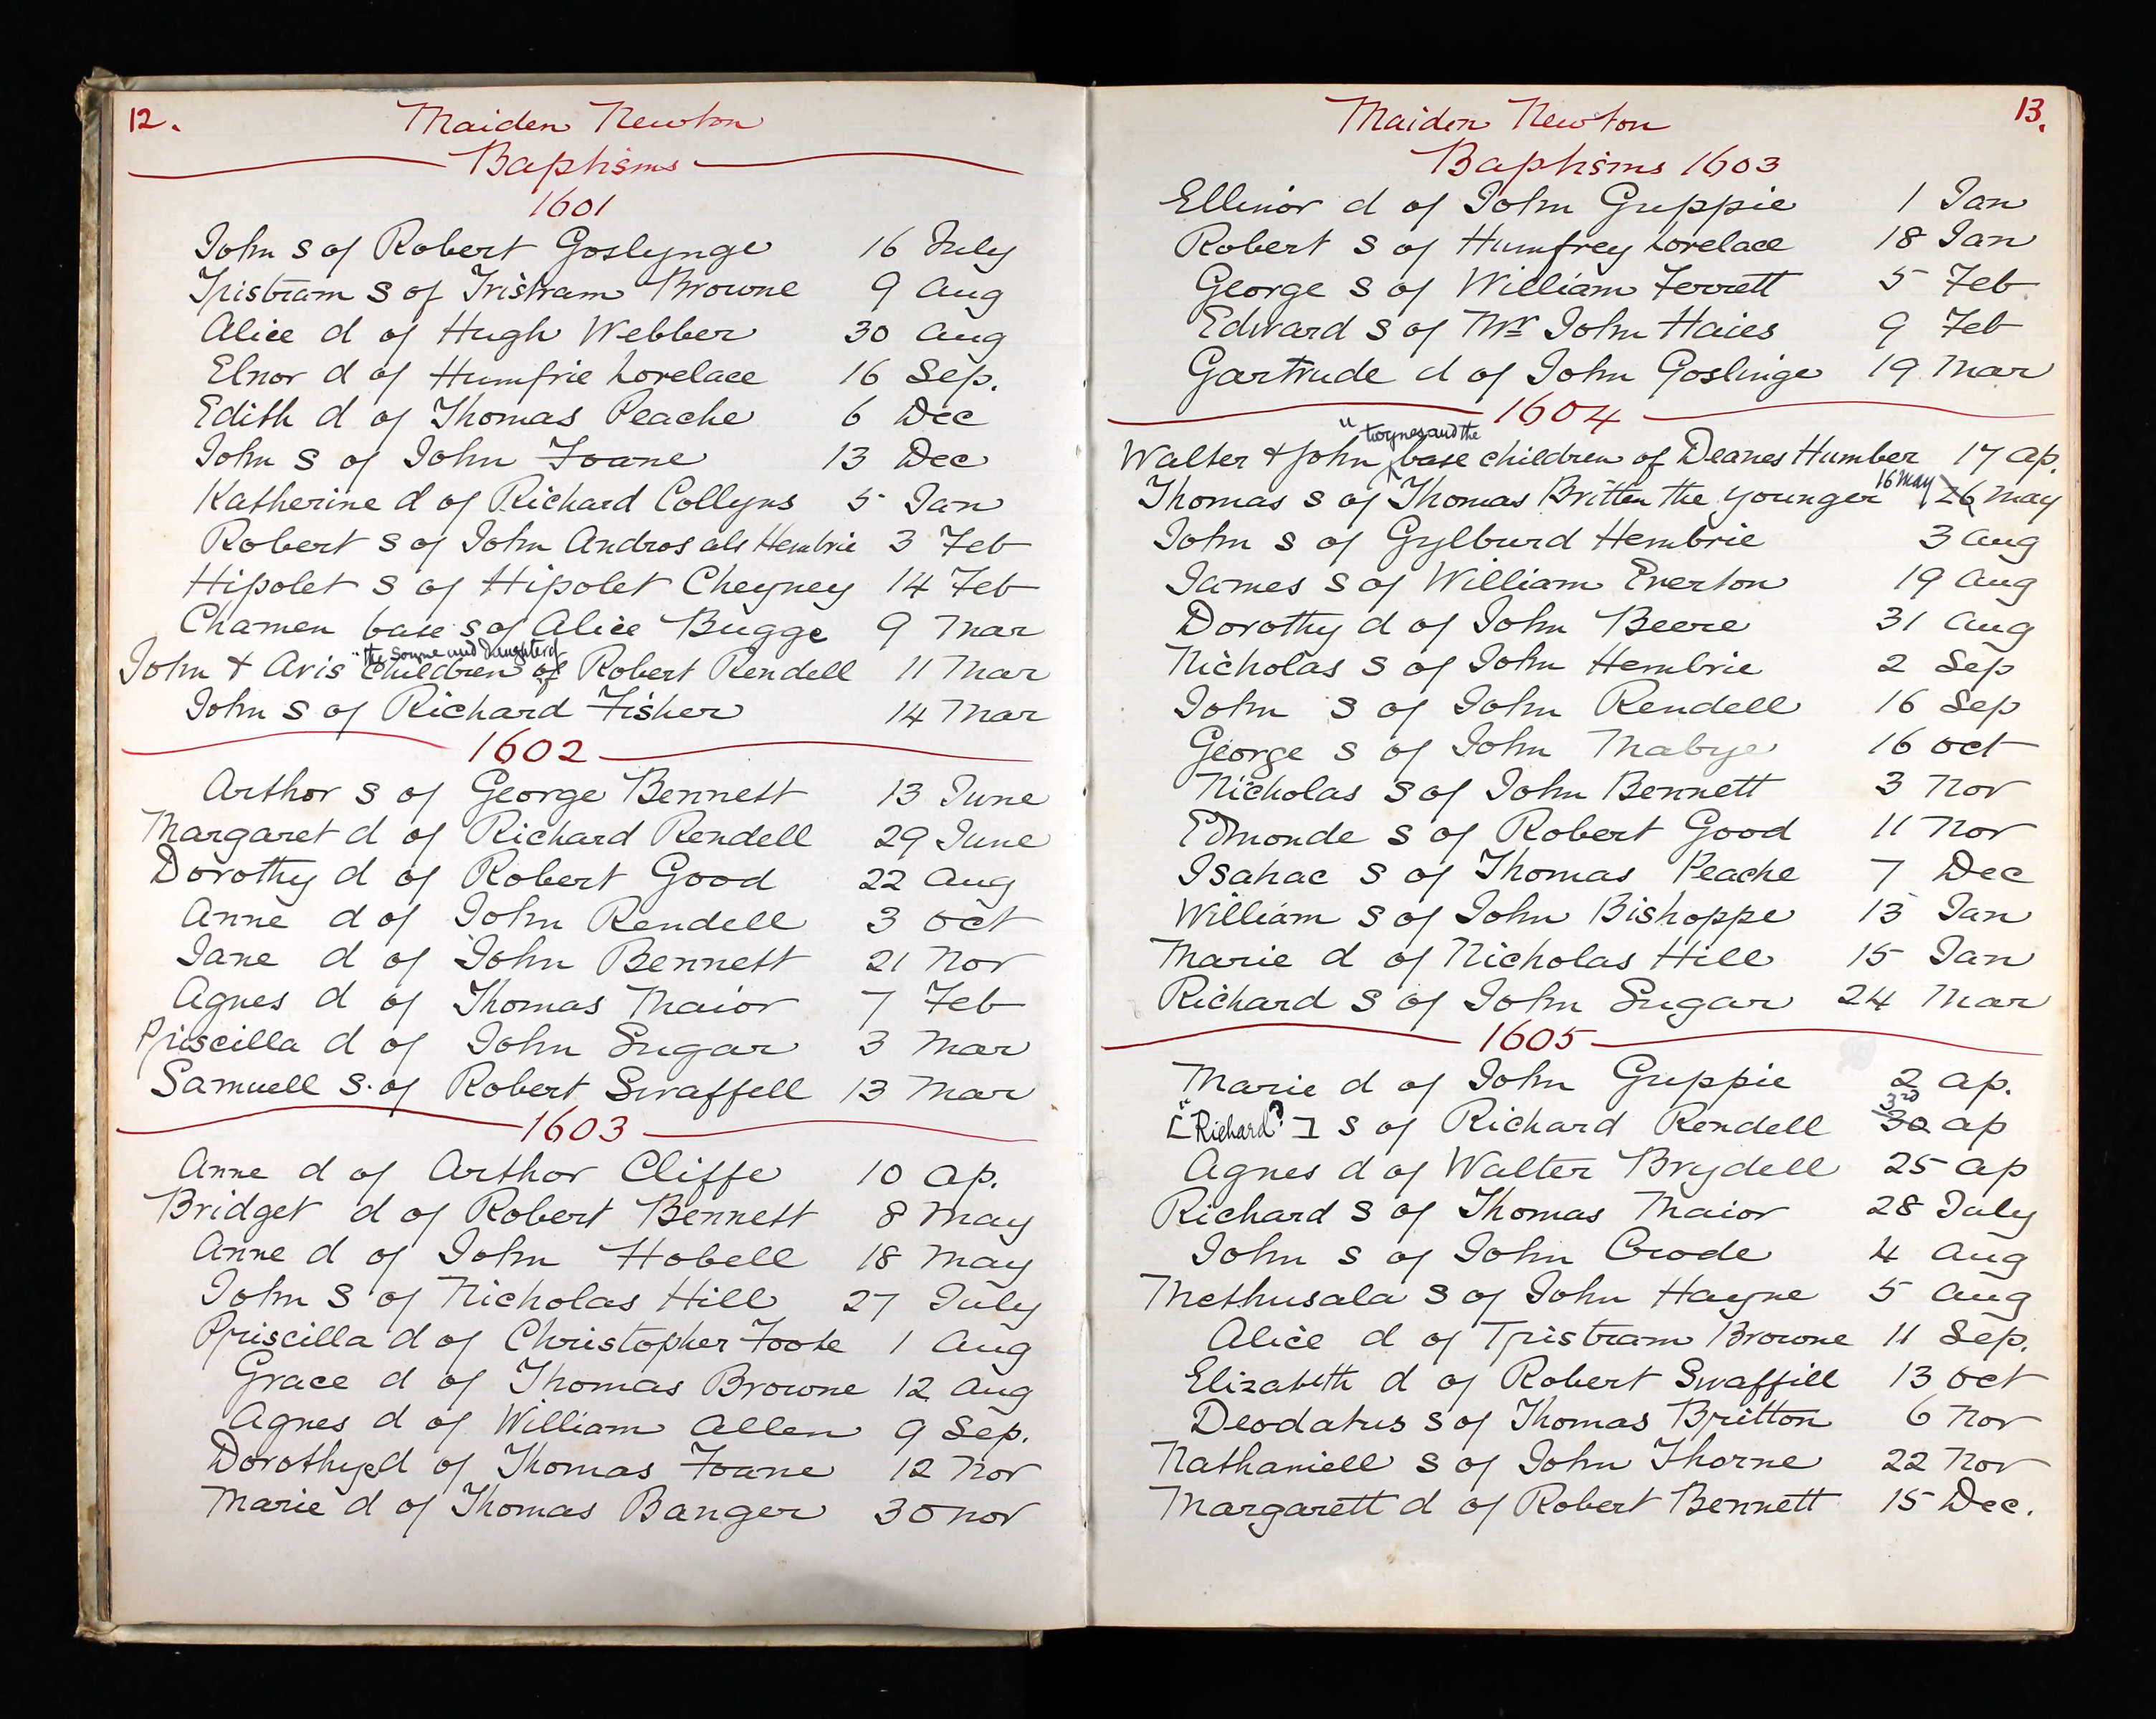 12.
Maiden Newton
Baptisms
1601
John s of Robert Goslynge 16 July
Tristram s of Tristram Browne 9 Aug
Alice d of Hugh Webber 30 Aug
Elnor d of Humfrie Lorelace 16 Sep.
Edith d of Thomas Peache 6 Dec
John s of John Foane 13 Dec
Katherine d of Richard Collyns 5 Jan
Robert s of John Andros als Hembrie 3 Feb
Hipolet s of Hipolet Cheyney 14 Feb
Chamen base s of Alice Bugge 9 Mar
"the Sonne and Daughter of
John & Avis Children of Robert Rendell 11 Mar
John s of Richard Fisher 14 Mar
1602
Arthor s of George Bennett 13 June
Margaret d of Richard Rendell 29 June
Dorothy d of Robert Good 22 Aug
Anne d of John Rendell 3 Oct
Jane d of John Bennett 21 Nov
Agnes d of Thomas Maior 7 Feb
Priscilla d of John Sugar 3 Mar
Samuell s. of Robert Swaffell 13 Mar
1603
Anne d of Arthor Cliffe 10 Ap.
Bridget d of Robert Bennett 8 May
Anne d of John Hobell 18 May
John s of Nicholas Hill 27 July
Priscilla d of Christopher Foote 1 Aug
Grace d of Thomas Browne 12 Aug
Agnes d of William Allen 9 Sep.
Dorothye d of Thomas Foane 12 Nov
Marie d of Thomas Banger 30 Nov
13.
Maiden Newton
Baptisms 1603
Ellinor d of John Guppie 1 Jan
Robert s of Humfrey Lorelace 18 Jan
George s of William Ferrett 5 Feb
Edward s of Mr John Haies 9 Feb
Gartrude d of John Goslinge 19 Mar
1604
" twynes and the
Walter & John base children of Deanes Humber 17 Ap.
Thomas s of Thomas Britten the younger 16 May 26 May
John s of Gylburd Hembrie 3 Aug
James s of William Everton 19 Aug
Dorothy d of John Beere 31 Aug
Nicholas s of John Hembrie 2 Sep
John s of John Rendell 16 Sep
George s of John Mabye 16 Oct
Nicholas s of John Bennett 3 Nov
Edmonde s of Robert Good 11 Nov
Isahac s of Thomas Peache 7 Dec
William s of John Bishoppe 13 Jan
Marie d of Nicholas Hill 15 Jan
Richard s of John Sugar 24 Mar
1605
Marie d of John Guppie 2 Ap.
["Richard?] s of Richard Rendell 3rd 30 Ap
Agnes d of Walter Brydell 25 Ap
Richard s of Thomas Maior 28 July
John s of John Crode 4 Aug
Methusala s of John Hayne 5 Aug
Alice d of Tristram Browne 11 Sep.
Elizabeth d of Robert Swaffill 13 Oct
Deodatus s of Thomas Britton 6 Nov
Nathaniell s of John Thorne 22 Nov
Margarett d of Robert Bennett 15 Dec.